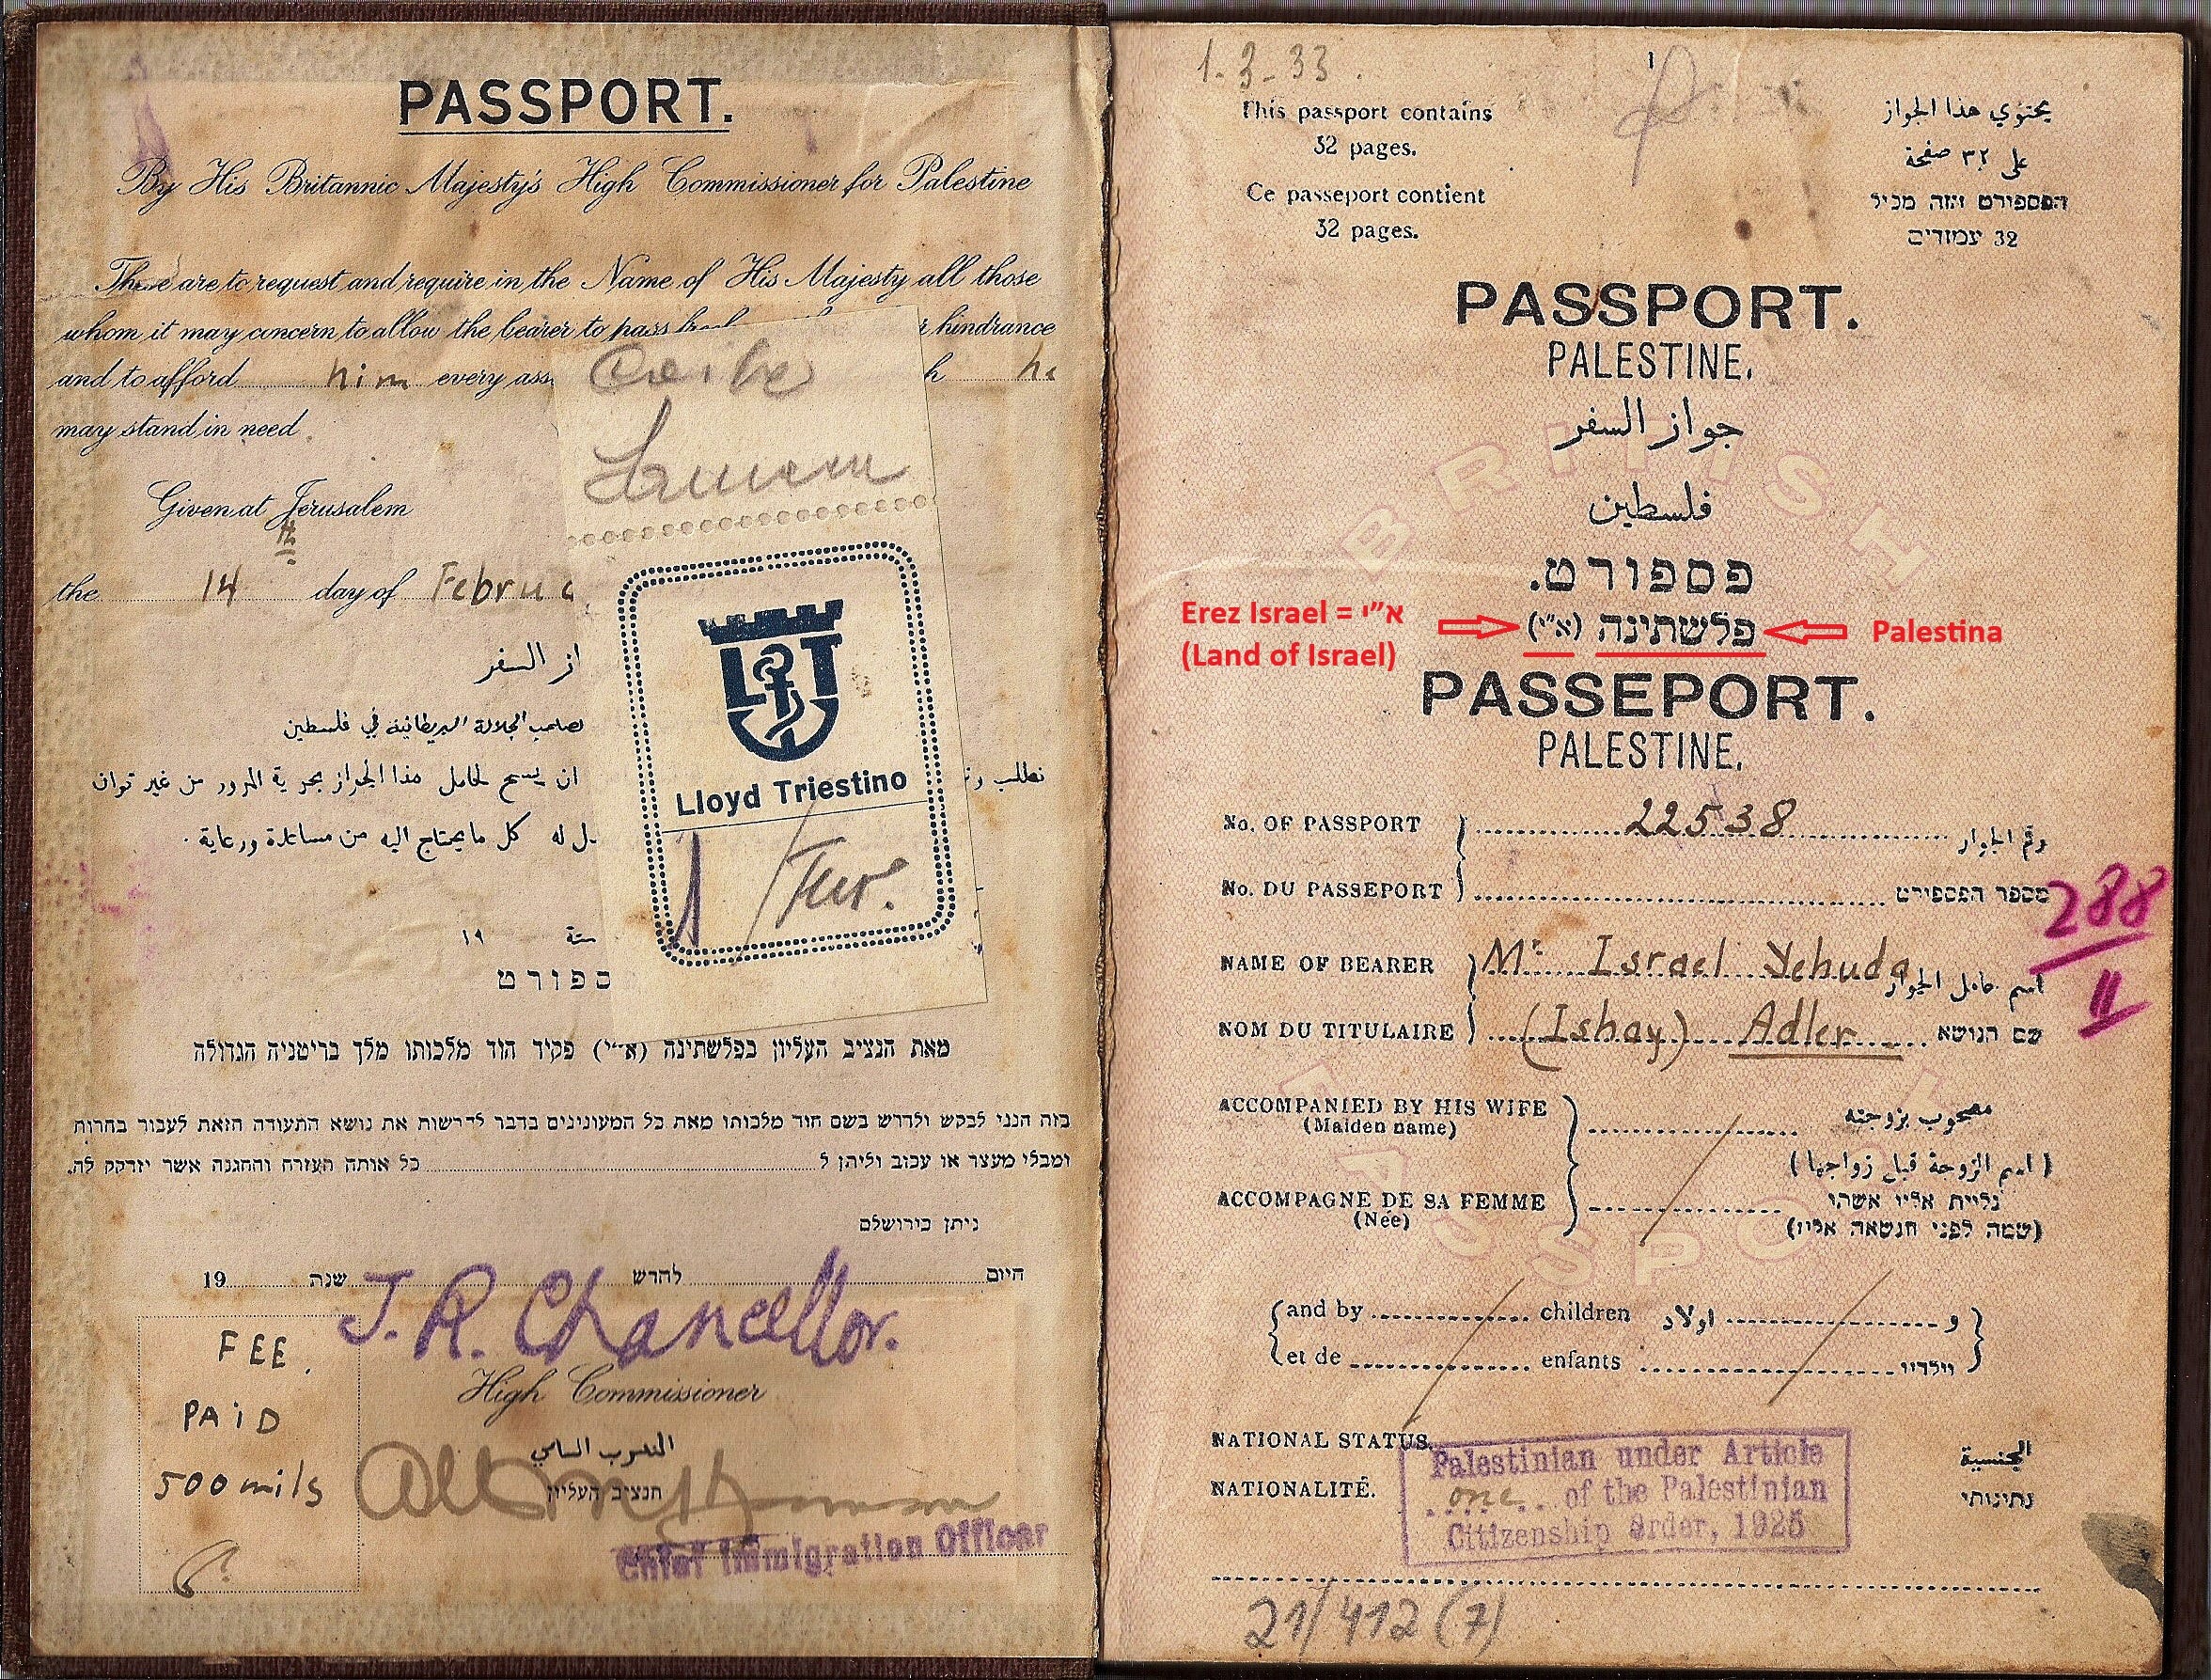 PASSPORT.
By His Britannic Majesty's High Commissioner for Palestine
These are to request and require in the Name of His Majesty all those
whom it may concern to allow the bearer to pass hindrance
and to afford him every ass h he
may stand in need.
Given at Jerusalem
the 14 day of Februa
از السفر
لصاحب الجلالة البريطانية في فلسطين
نطلب ون ان يسمح لحامل هذا الجواز بحرية المرور من غير توان
ل له كل ما يحتاج اليه من مساعدة ورعاية.
سنة ١٩
ספורט
מאת הנציב העליון בפלשתינה (א״י) פקיד הוד מלכותו מלך בריטניה הגדולה
בזה הנני לבקש ולדרש בשם הוד מלכותו מאת כל המעונינים בדבר להרשות את נושא התעודה הזאת לעבור בחרות
ומבלי מעצר או עכוב וליתן ל כל אותה העזרה וההגנה אשר יזדקק לה.
ניתן בירושלם
היום לחדש שנת 19
J. R. Chancellor.
High Commissioner
المندوب السامي
הנציב העליון
Chief Immigration Officer
FEE.
PAID
500 mils
Lloyd Triestino
1-3-33.
1
This passport contains
32 pages.
Ce passeport contient
32 pages.
يحتوي هذا الجواز
على ٣٢ صفحة
הפספורט הזה מכיל
32 עמודים
PASSPORT.
PALESTINE.
جواز السفر
فلسطين
פספורט.
פלשתינה (א״י)
Erez Israel = א״י
(Land of Israel)
Palestina
PASSEPORT.
PALESTINE.
BRITISH
PASSPORT
No. OF PASSPORT 22538 رقم الجواز
No. DU PASSEPORT מספר הפספורט
288
II
NAME OF BEARER Mr Israel Yehuda اسم حامل الجواز
NOM DU TITULAIRE (Ishay) Adler שם הנושא
ACCOMPANIED BY HIS WIFE مصحوب بزوجته
(Maiden name)
(اسم الزوجة قبل زواجها)
ACCOMPAGNÉ DE SA FEMME נלוית אליו אשתו
(Née) (שמה לפני הנשאה אליו)
and by children و اولاد
et de enfants וילדיו
NATIONAL STATUS. الجنسية
NATIONALITÉ. נתינותו
Palestinian under Article
one of the Palestinian
Citizenship Order, 1925
21/412 (7)